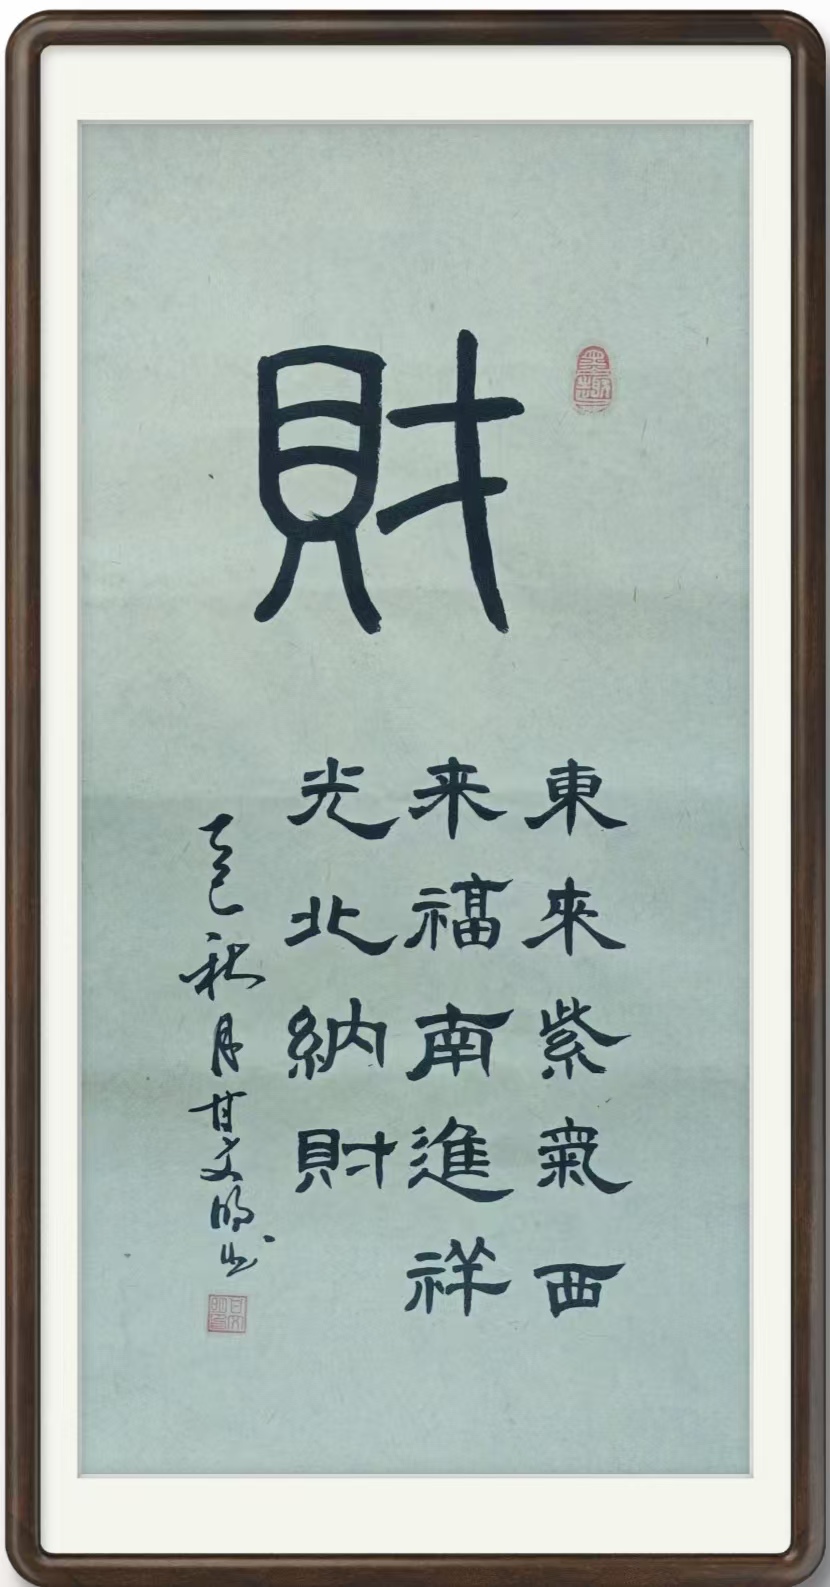 財
東來紫氣西
来福南進祥
光北納財
乙巳秋月甘文明书